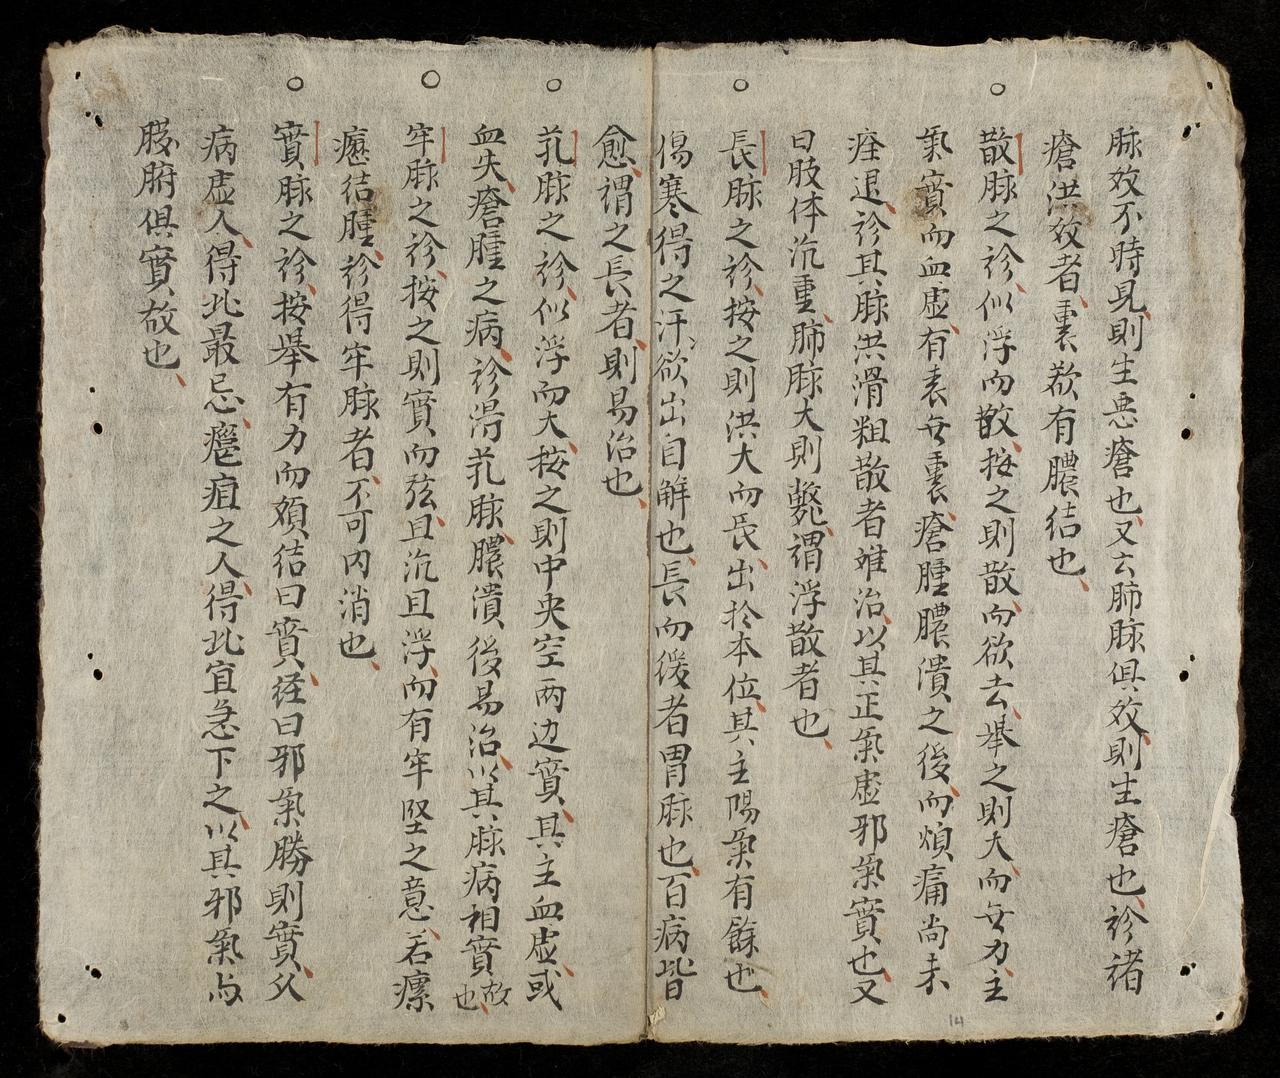 脉效不時見則生悪瘡也又云肺脉俱效則生瘡也診禇
瘡洪效者裏欲有膿结也
○散脉之診似浮而散按之則散而欲去舉之則大而無力主
氣實而血虚有表無裏瘡腫膿潰之後而煩痛尚未
痊退診其脉洪滑粗散者难治以其正氣虚邪氣實也又
曰肢体沉重肺脉大則斃謂浮散者也
○長脉之診按之則洪大而長出於本位其主陽氣有餘也
傷寒得之汗欲出自解也長而缓者胃脉也百病皆
愈謂之長者則易治也
○芤脉之診似浮而大按之則中央空两边實其主血虚或
血失瘡腫之病診淂芤脉膿潰後易治以其脉病相實故也
○牢脉之診按之則實而弦且沉且浮而有牢堅之意若瘰
癧结腫診得牢脉者不可内消也
○實脉之診按舉有力而類结曰實経曰邪氣勝則實久
病虚人得此最忌癰疽之人得此宜急下之以其邪氣与
臓腑俱實故也
14